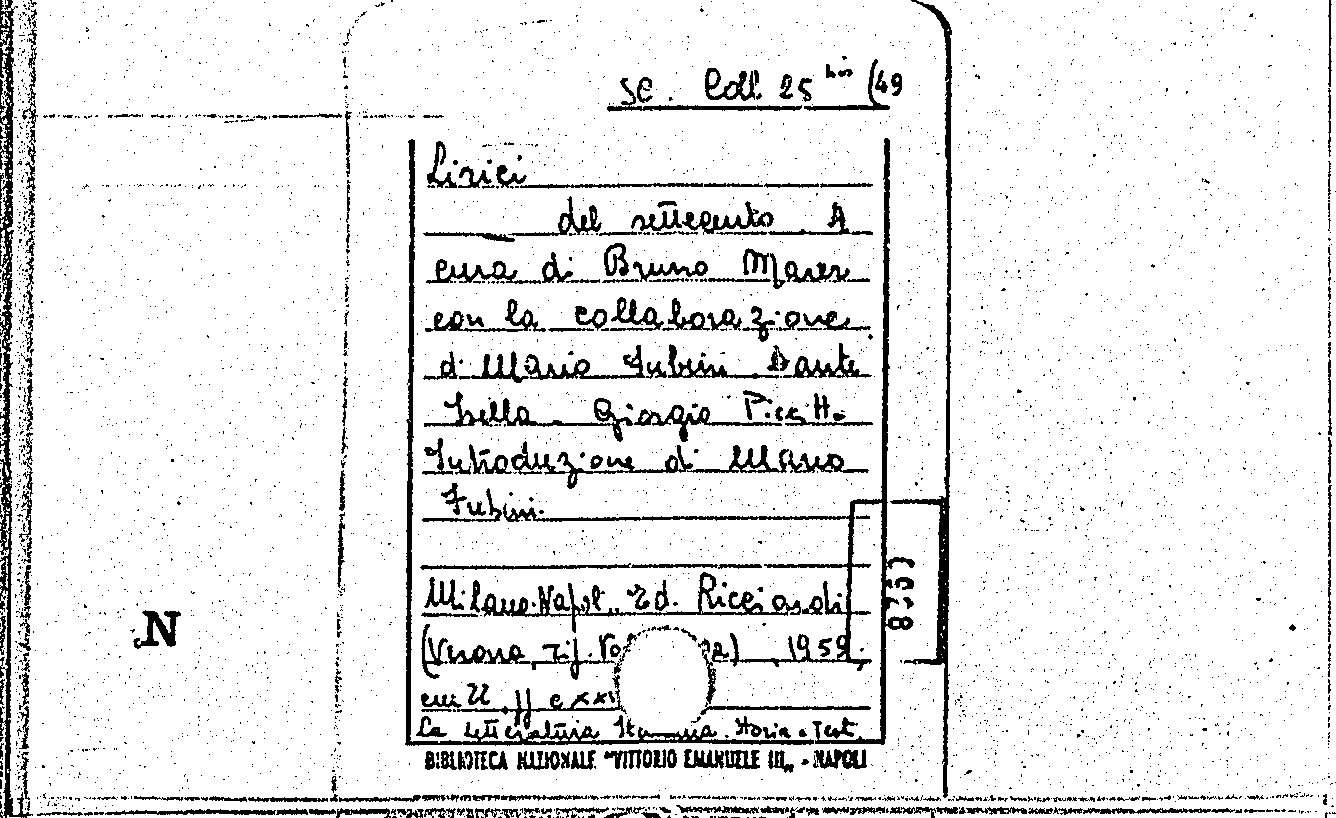 SC. Coll 25 bis (49
Lirici
del settecento. A
cura di Bruno Maier
con la collaborazione
di Mario Fubini Dante
Isella. Giorgio Piccitto
Introduzione di Mario
Fubini.
Milano-Napoli. Ed. Ricciardi
(Verona, 1959.
cm 22
La letteratura Storia e Test.
BIBLIOTECA NAZIONALE "VITTORIO EMANUELE III„ - NAPOLI
N